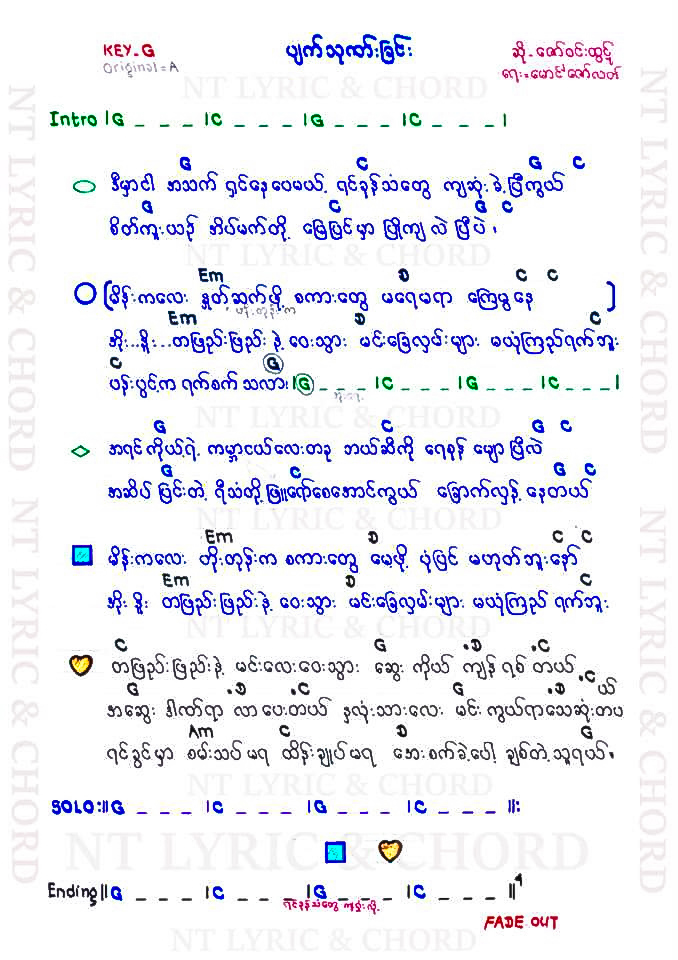 KEY-G
Original = A
ပျက်သုဏ်းခြင်း
ဆို - ဇော်ဝင်းထွဋ်
ရေး = မောင်မောင်ဇော်လတ်
NT LYRIC & CHORD
Intro |G _ _ _ |C _ _ _ |G _ _ _ |C _ _ _ |
G C G C
ဒီမှာငါ အသက် ရှင်နေပေမယ့် ရင်ခုန်သံတွေ ကျဆုံးခဲ့ပြီကွယ်
G C G C
စိတ်ကူးယဉ် အိပ်မက်တို့ မြေပြင်မှာ ပြိုကျလဲပြီပဲ
Em D C C
(မိန်းကလေး နှုတ်ဆက်ဖို့ စကားတွေ မရေမရာ ကြေမွနေ)
Em D C
အိုး...နိူး...တဖြည်းဖြည်းနဲ့ ဝေးသွား မင်းခြေလှမ်းများ မယုံကြည်ရက်ဘူး
C G
ပန်းပွင့်က ရက်စက်သလား |G _ _ _ |C _ _ _ |G _ _ _ |C _ _ _ |
G C G C
အရင်ကိုယ့်ရဲ့ ကမ္ဘာငယ်လေးတခု ဘယ်ဆီကို ရေစုန်မျောပြီလဲ
G C G C
အဆိပ်ပြင်းတဲ့ ရီသံတို့ ဖြူရော်စေအောင်ကွယ် ခြောက်လှန့်နေတယ်
Em D C C
မိန်းကလေး တိုးတုန်းက စကားတွေ မေ့ဖို့ ပုံပြင် မဟုတ်ဘူးနော်
Em D C
အိုး နိူး တဖြည်းဖြည်းနဲ့ ဝေးသွား မင်းခြေလှမ်းများ မယုံကြည်ရက်ဘူး
C G .D .C
တဖြည်းဖြည်းနဲ့ မင်းလေးဝေးသွား ဆွေးကိုယ် ကျန်ရစ်တယ်
G .D .C G .D .C
အဆွေး ဒါဏ်ရာ လာပေးတယ် နှလုံးသားလေး မင်းကွယ်ရာသေဆုံးတပယ်
Am C D G
ရင်ခွင်မှာ စမ်းသပ်မရ ထိန်းချုပ်မရ အေးစက်ခဲ့ပေါ့ ချစ်တဲ့သူရယ်
SOLO:||G _ _ _ |C _ _ _ |G _ _ _ |C _ _ _ ||:
Ending||G _ _ _ |C _ _ _ |G _ _ _ |C _ _ _ ||4
ရင်ခုန်သံတွေ ကျဆုံးလို့
FADE OUT
NT LYRIC & CHORD